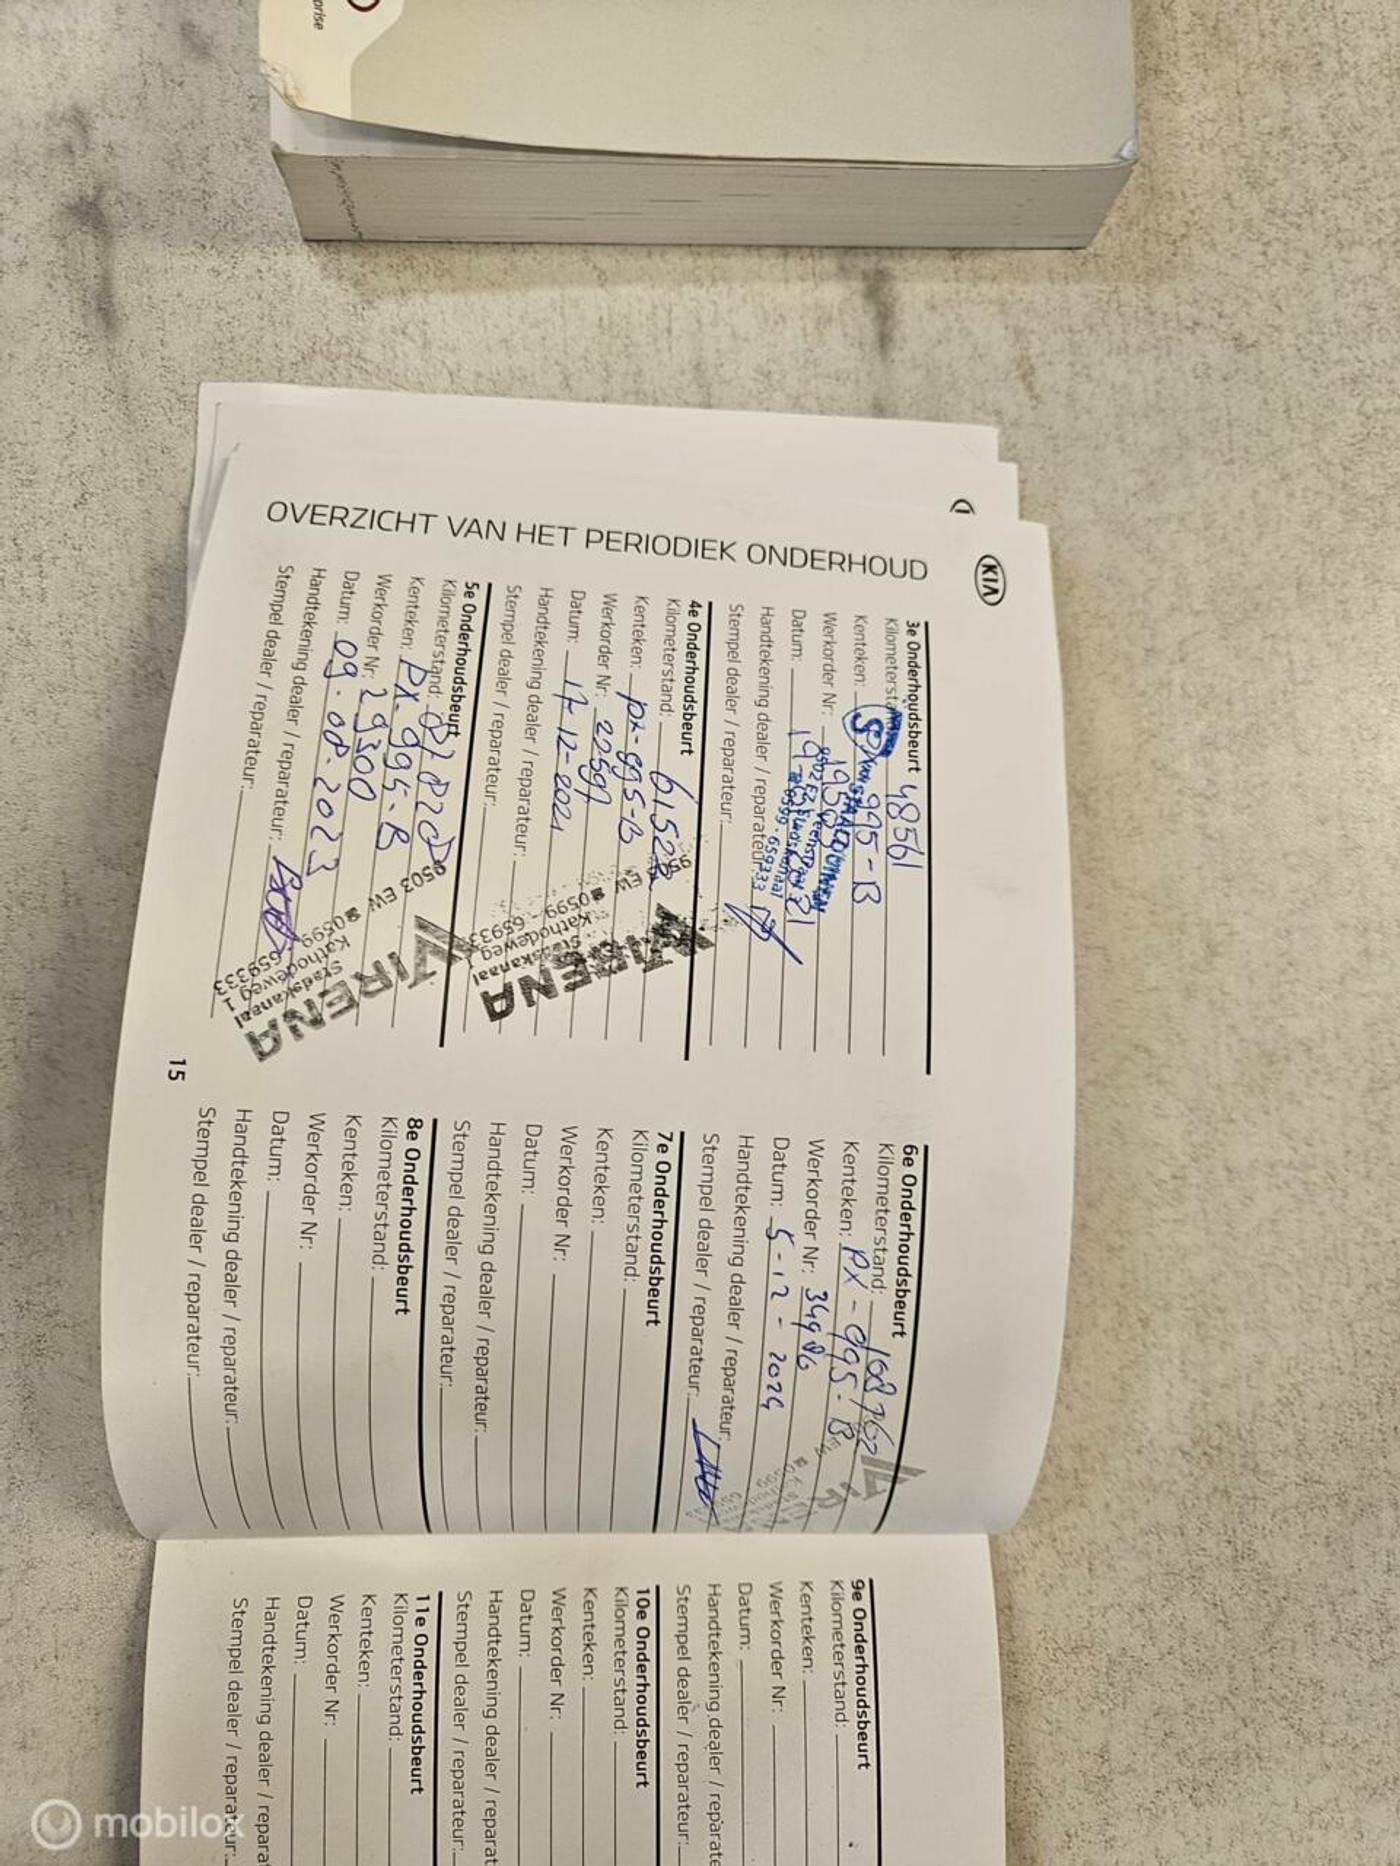 prise
KIA
OVERZICHT VAN HET PERIODIEK ONDERHOUD
3e Onderhoudsbeurt
48561
Kenteken: 995-B
Werkorder Nr:
Datum:
Handtekening dealer / reparateur:
Stempel dealer / reparateur:
4e Onderhoudsbeurt
Kilometerstand:
Kenteken: PX-995-B
Werkorder Nr: 22597
Datum: 17-12-2021
Handtekening dealer / reparateur:
Stempel dealer / reparateur:
WIRENA
Stadskanaal
Kathodeweg 1
☎ 0599 - 659333
5e Onderhoudsbeurt
Kilometerstand:
Kenteken: PX-995-B
Werkorder Nr: 29300
Datum: 09-08-2023
Handtekening dealer / reparateur:
Stempel dealer / reparateur:
WIRENA
Stadskanaal
Kathodeweg 1
☎ 0599 659333
9503 EW
15
6e Onderhoudsbeurt
Kilometerstand:
Kenteken: PX-995-B
Werkorder Nr: 34986
Datum: 5-12-2024
Handtekening dealer / reparateur:
Stempel dealer / reparateur:
7e Onderhoudsbeurt
Kilometerstand:
Kenteken:
Werkorder Nr:
Datum:
Handtekening dealer / reparateur:
Stempel dealer / reparateur:
8e Onderhoudsbeurt
Kilometerstand:
Kenteken:
Werkorder Nr:
Datum:
Handtekening dealer / reparateur:
Stempel dealer / reparateur:
9e Onderhoudsbeurt
Kilometerstand:
Kenteken:
Werkorder Nr:
Datum:
Handtekening dealer / reparate
Stempel dealer / reparateur:
10e Onderhoudsbeurt
Kilometerstand:
Kenteken:
Werkorder Nr:
Datum:
Handtekening dealer / reparat
Stempel dealer / reparateur:
11e Onderhoudsbeurt
Kilometerstand:
Kenteken:
Werkorder Nr:
Datum:
Handtekening dealer / repara
Stempel dealer / reparateur:
mobilox